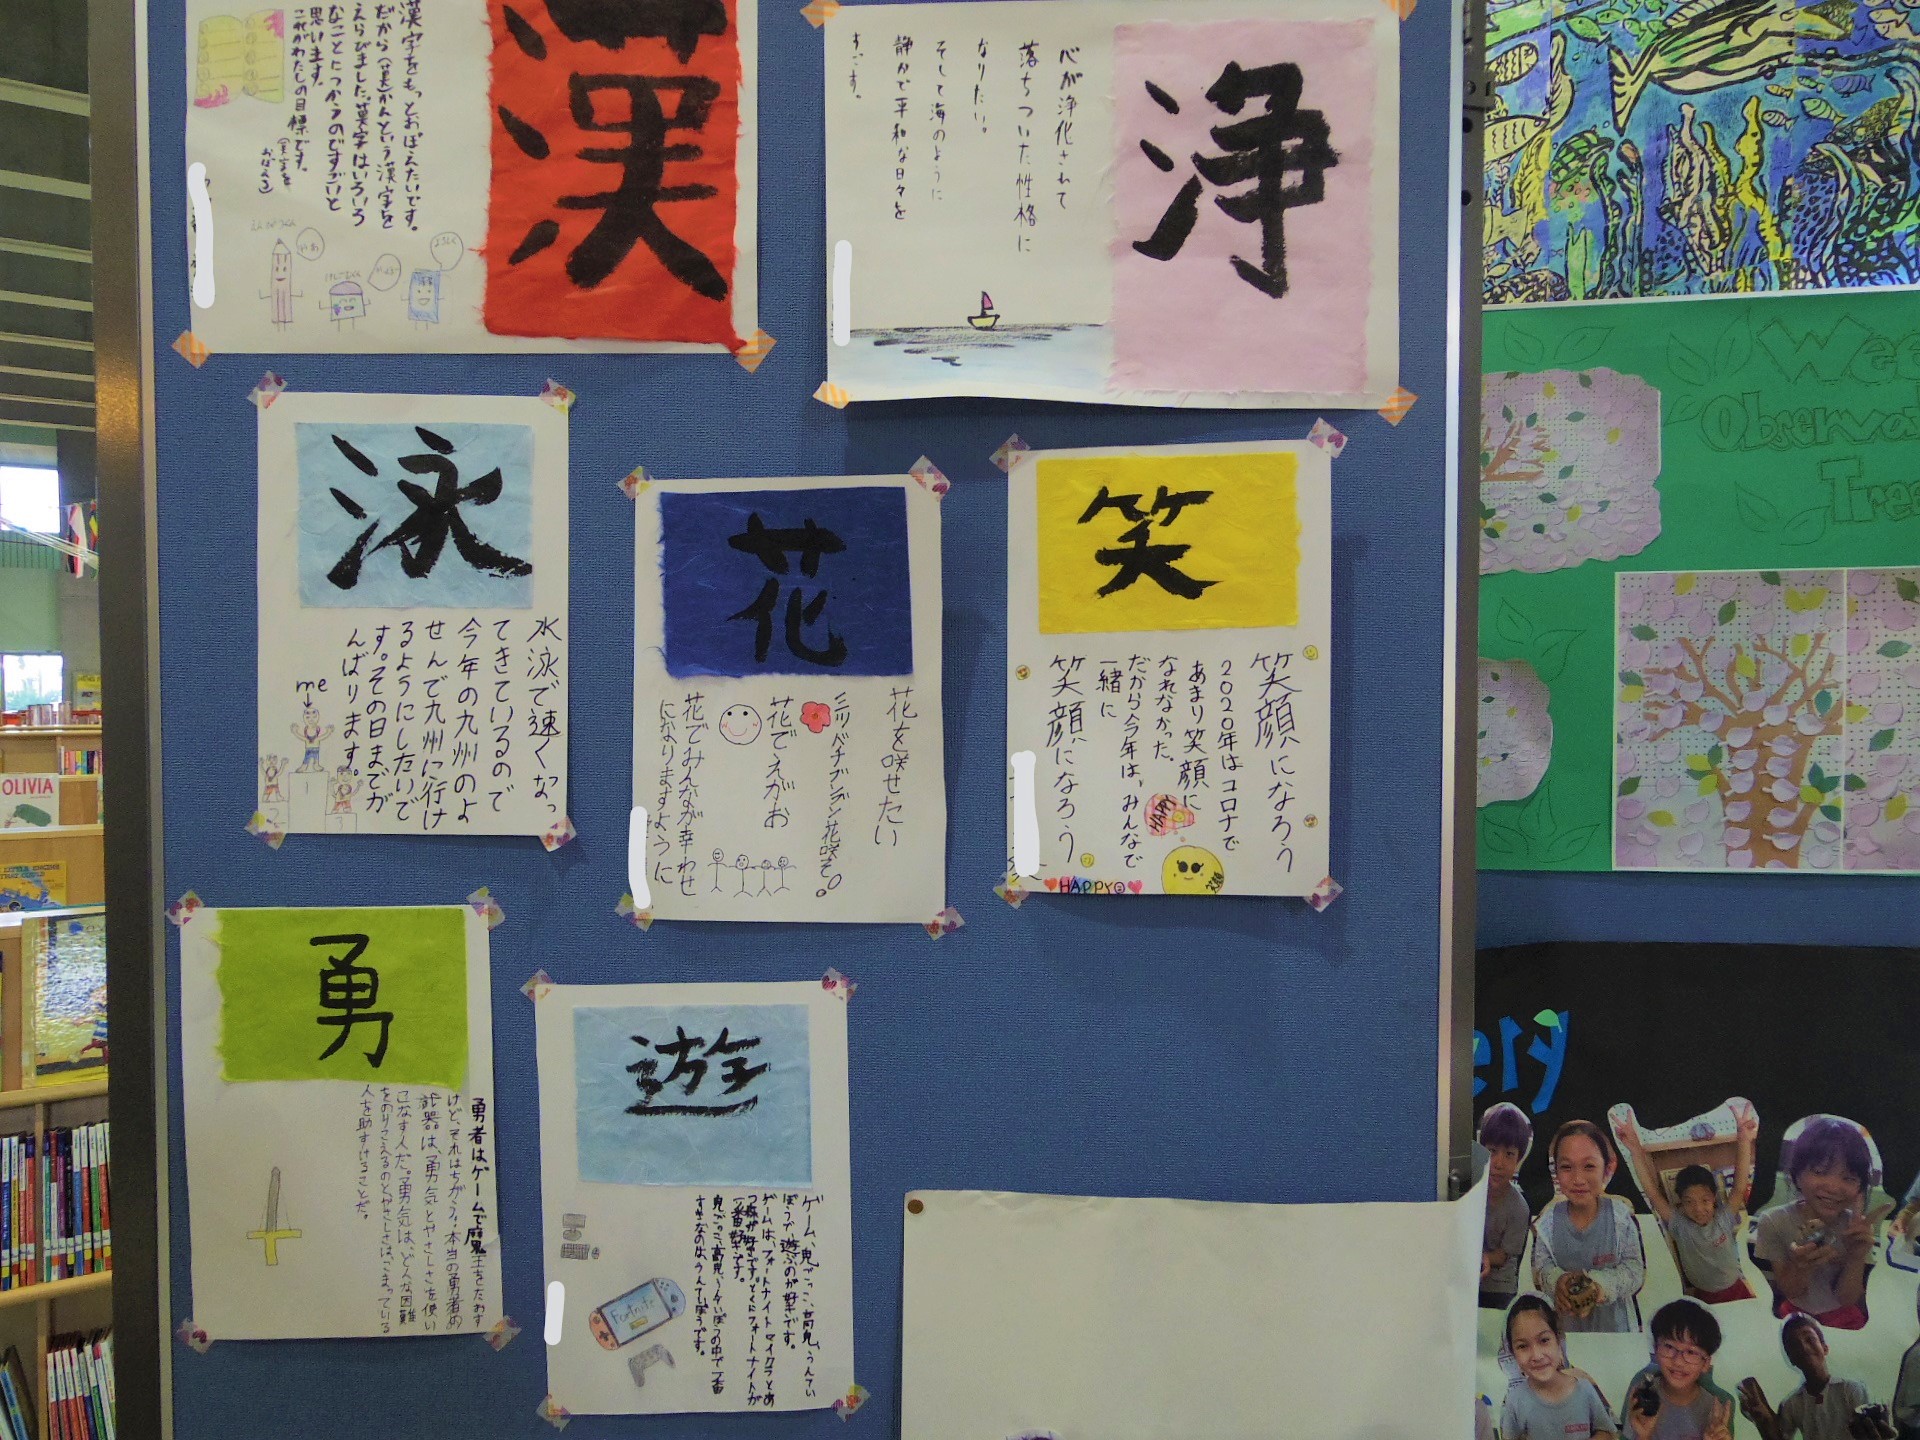 漢
漢字をもっとおぼえたいです。
だから(漢)かんという漢字を
えらびました。漢字はいろいろ
なことにつかうのですごいと
思います。
これがわたしの目標です。
(漢字を
おぼえる)
浄
心が浄化されて
落ちついた性格に
なりたい。
そして海のように
静かで平和な日々を
すごす。
泳
水泳で速くなっ
てきているので
今年の九州のよ
せんで九州に行け
るようにしたいで
す。その日までが
んばります。
me
1
2
3
花
花を咲せたい
ミツバチブンブン花咲そう。
花でえがお
花でみんなが幸わせ
になりますように
笑
笑顔になろう
2020年はコロナで
あまり笑顔に
なれなかった。
だから今年は、みんなで
一緒に
笑顔になろう
HAPPY
HAPPY
勇
勇者はゲームで魔王をたおす
けど、それはちがう。本当の勇者の
武器は、勇気とやさしさを使い
こなす人だ。勇気は、どんな困難
をのりこえるのとやさしさは、こまっている
人を助すけることだ。
遊
ゲーム、鬼ごっこ、高鬼、うんてい
ぼうで、遊ぶのが好きです。
ゲームは、フォートナイト
一番好きです。
Fortnite
Wee
Observa
Tree
ery
OLIVIA